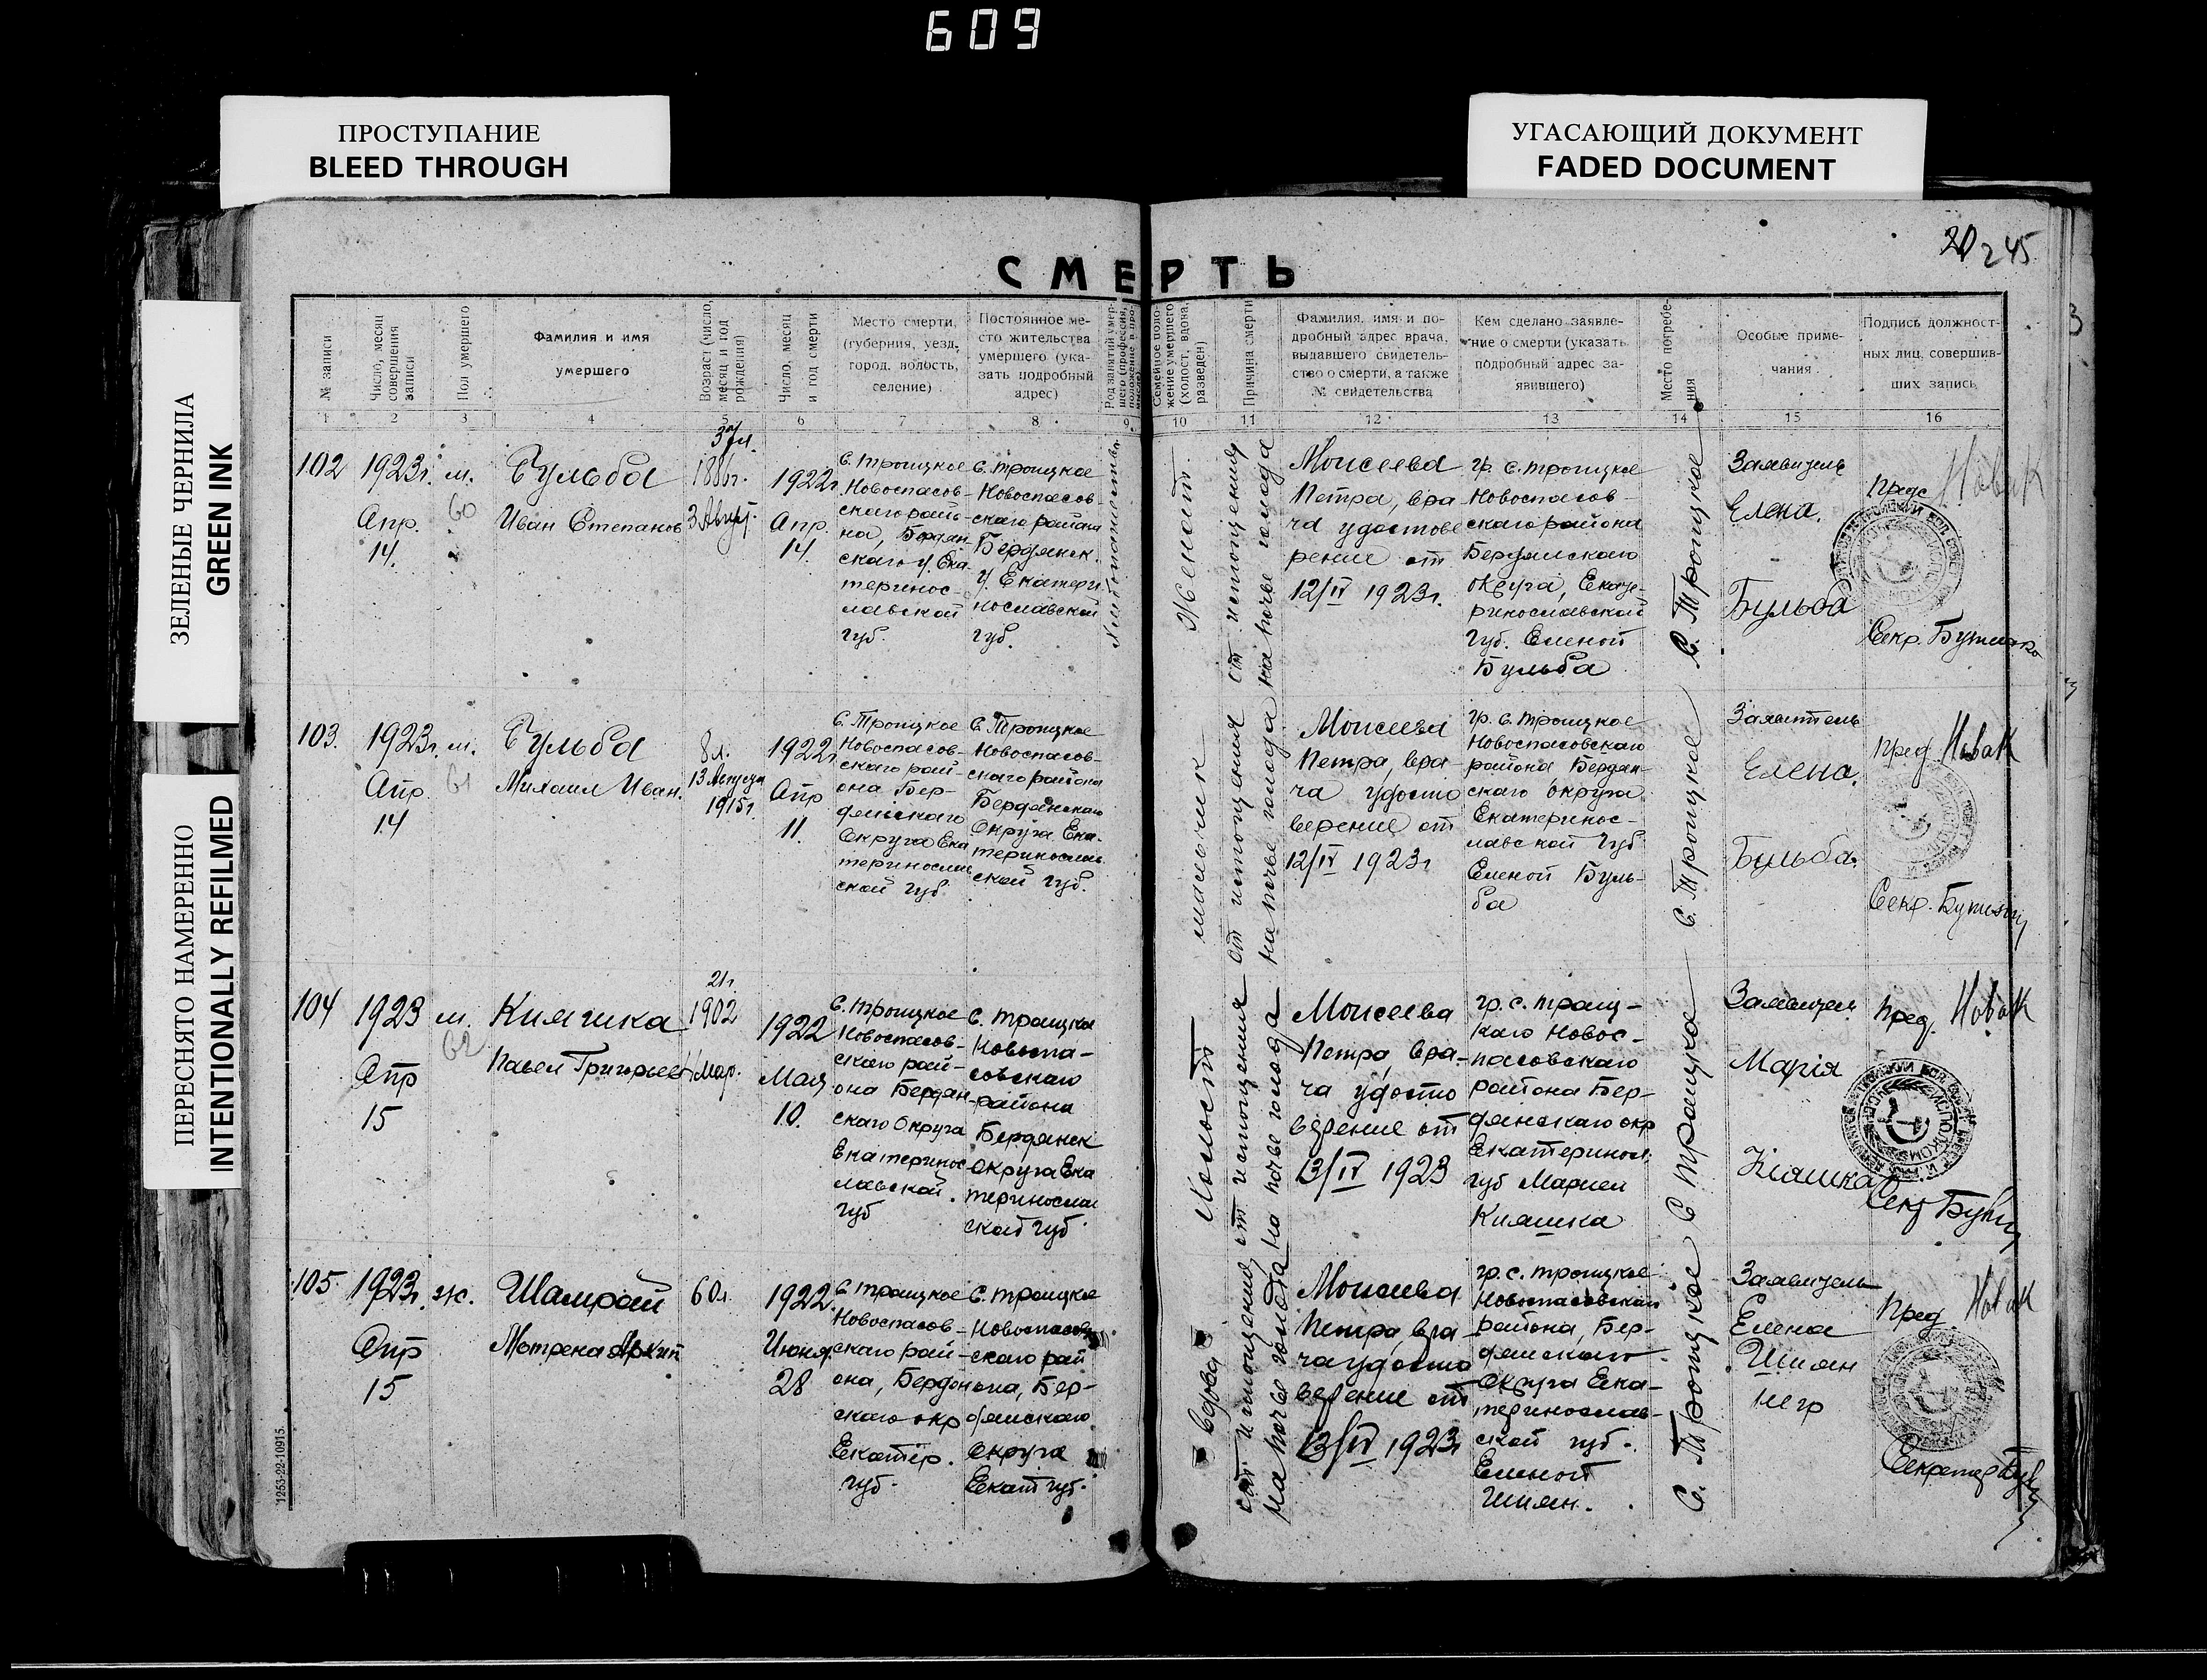 609
ПРОСТУПАНИЕ
BLEED THROUGH
УГАСАЮЩИЙ ДОКУМЕНТ
FADED DOCUMENT
ЗЕЛЕНЫЕ ЧЕРНИЛА
GREEN INK
ПЕРЕСНЯТО НАМЕРЕННО
INTENTIONALLY REFILMED
245
СМЕРТЬ
№ записи
Число, месяц совершения записи
Пол умершего
Фамилия и имя умершего
Возраст (число, месяц и год рождения)
Число, месяц и год смерти
Место смерти, (губерния, уезд, город, волость, селение)
Постоянное место жительства умершего (указать подробный адрес)
Семейное положение умершего (холост, вдова, разведен)
Причина смерти
Фамилия, имя и подробный адрес врача, выдавшего свидетельство о смерти, а также № свидетельства
Кем сделано заявление о смерти (указать подробный адрес заявившего)
Место погребения
Особые примечания
Подпись должностных лиц, совершивших запись
1 2 3 4 5 6 7 8 9 10 11 12 13 14 15 16
102
1923г.
Апр.
14.
м.
60
Бульба
Иван Степанов
1886г.
1922г
Апр.
14.
с. Троицкое
Новоспасов-
скаго райо-
на, Бердян-
скаго у. Ека-
теринос-
лавской
губ.
с. Троицкое
Новоспасов-
скаго района
Бердянск.
у. Екатери
нославской
губ.
Женат.
от истощения
на почве голода
Моисеева
Петра, вра
ча удостове
рение от
12/IV 1923г.
гр. с. Троицкое
Новоспасов-
скаго района
Бердянскаго
округа, Екате-
ринославской
губ. Еленой
Бульба
С. Троицкое
Заявитель
Елена.
Бульба
Пред. Новак
Секр.
103.
1923г.
Апр.
14
м.
61
Бульба
Михаил Иван.
8л.
13 Августа
1915г.
1922г
Апр
11.
С. Троицкое
Новоспасов-
скаго рай-
она Бер-
дянскаго
Округа Ека
теринослав
ской губ.
С. Троицкое
Новоспасов-
скаго района
Бердянскаго
Округа Ека-
теринослав
ской губ.
мальчик
от истощения
на почве голода
Моисеева
Петра, вра-
ча удосто
верение от
12/IV 1923г
гр. с. Троицкое
Новоспасовскаго
района, Бердян-
скаго округа
Екатеринос-
лавской губ
Еленой Буль-
ба
С. Троицкое
Заявитель
Елена.
Бульба.
Пред. Новак
Секр.
104
1923
Апр
15
м.
62
Кияшка
Павел Григорьев
21г.
1902
1 Мар.
1922
Мая
10.
С. Троицкое
Новоспасов-
скаго рай-
она Бердян-
скаго Округа
Екатеринос-
лавской.
губ
С. Троицкое
Новоспа-
совскаго
района
Бердянск
округа Ека
теринослав
ской губ
Холост
от истощения
на почве голода
Моисеева
Петра, вра-
ча удосто
верение от
13/IV 1923
гр. с. Троиц-
каго Новос-
пасовскаго
района Бер-
дянскаго окр
Екатеринос.
губ Марией
Кияшка
С Троицкое
Марія
Кіяшка
Пред. Новак
105.
1923г.
Апр
15
ж.
Шамрай
Мотрена Архип
60л.
1922.
Июня.
28
С Троицкое
Новоспасов-
скаго рай-
она, Бердян
скаго окр
Екатер.
губ.
С. Троицкое
Новоспасов
скаго рай
она, Бер-
дянскаго.
Округа
Екат губ.
Вдова
от истощения
на почве голода
Моисеева
Петра, вра-
ча удосто
верение от
13/IV 1923г
гр. с. Троицкое
Новоспасовскаго
района, Бер-
дянскаго
Округа Ека-
теринослав-
ской губ.
Еленой
Шиян.
С. Троицкое
Заявитель
Елена
Шиян
Пред. Новак
1253-22-10915.